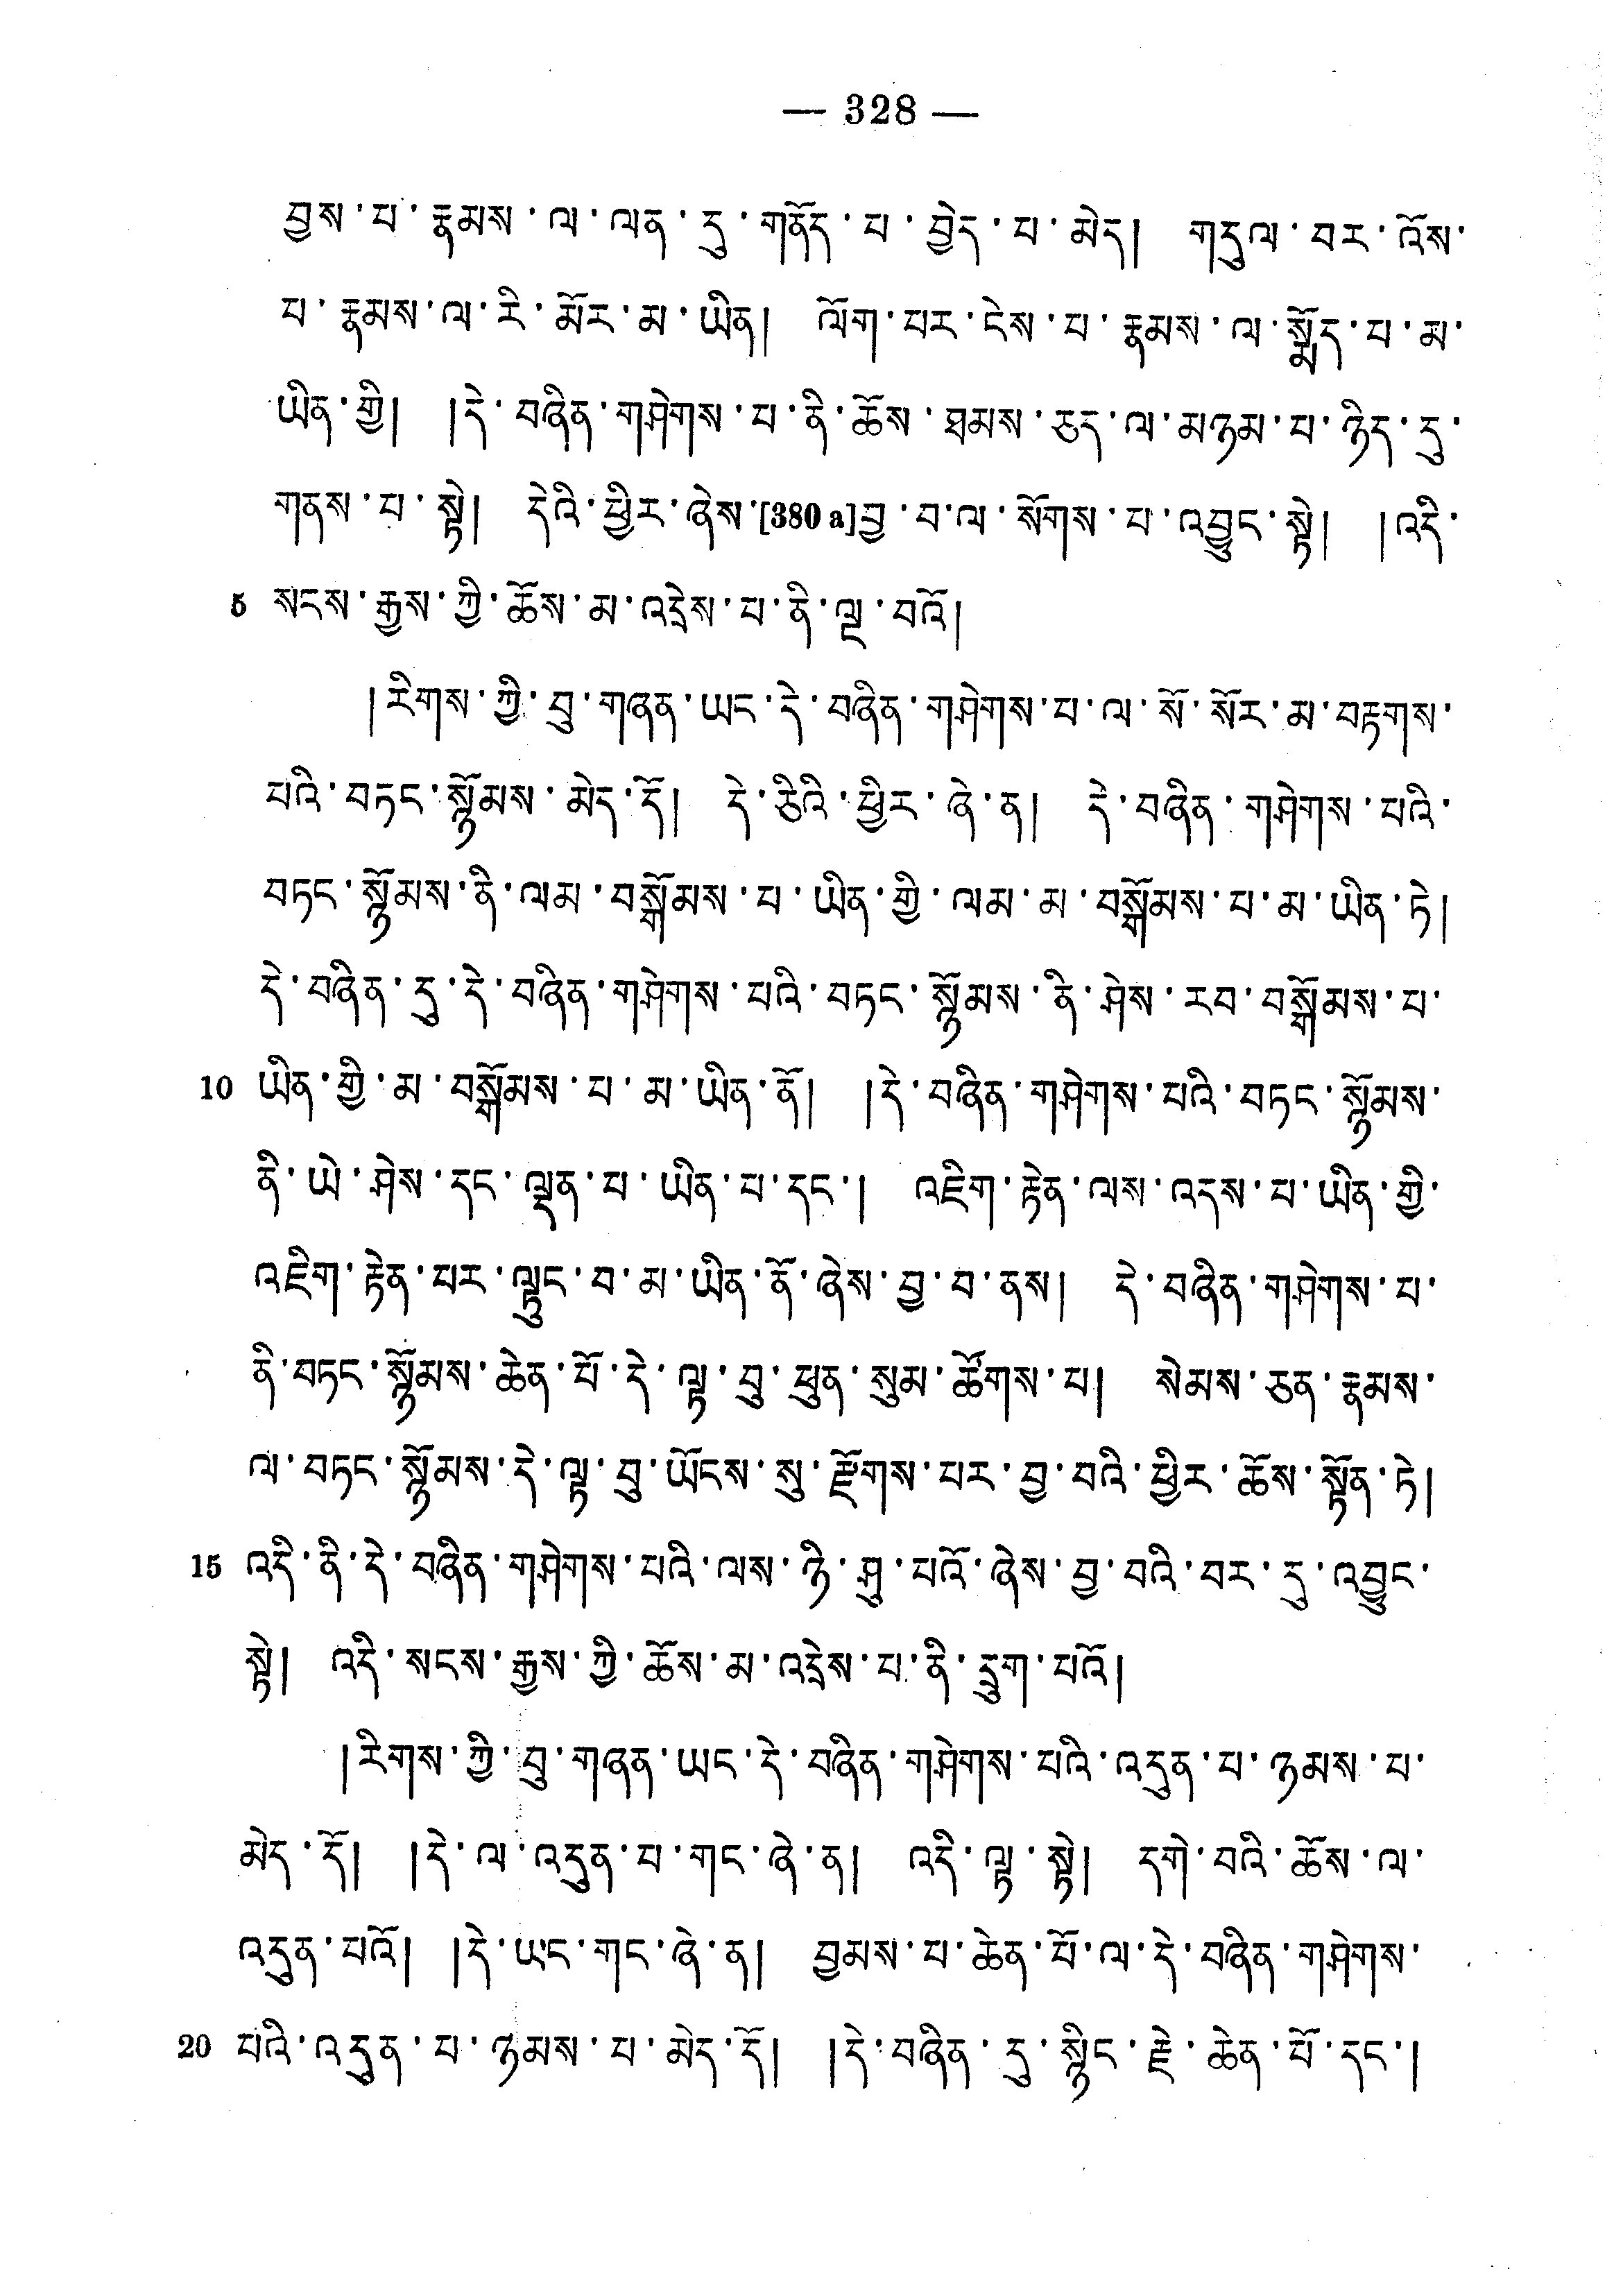 — 328 —
བྱས་པ་རྣམས་ལ་ལན་དུ་གནོད་པ་བྱེད་པ་མེད། གདུལ་བར་འོས་
པ་རྣམས་ལ་རི་མོར་མ་ཡིན། ལོག་པར་ངེས་པ་རྣམས་ལ་སྨོད་པ་མ་
ཡིན་གྱི། །དེ་བཞིན་གཤེགས་པ་ནི་ཆོས་ཐམས་ཅད་ལ་མཉམ་པ་ཉིད་དུ་
གནས་པ་སྟེ། དེའི་ཕྱིར་ཞེས་[380 a]བྱ་བ་ལ་སོགས་པ་འབྱུང་སྟེ། །འདི་
5 སངས་རྒྱས་ཀྱི་ཆོས་མ་འདྲེས་པ་ནི་ལྔ་བའོ།
།རིགས་ཀྱི་བུ་གཞན་ཡང་དེ་བཞིན་གཤེགས་པ་ལ་སོ་སོར་མ་བརྟགས་
པའི་བཏང་སྙོམས་མེད་དོ། དེ་ཅིའི་ཕྱིར་ཞེ་ན། དེ་བཞིན་གཤེགས་པའི་
བཏང་སྙོམས་ནི་ལམ་བསྒོམས་པ་ཡིན་གྱི་ལམ་མ་བསྒོམས་པ་མ་ཡིན་ཏེ།
དེ་བཞིན་དུ་དེ་བཞིན་གཤེགས་པའི་བཏང་སྙོམས་ནི་ཤེས་རབ་བསྒོམས་པ་
10 ཡིན་གྱི་མ་བསྒོམས་པ་མ་ཡིན་ནོ། །དེ་བཞིན་གཤེགས་པའི་བཏང་སྙོམས་
ནི་ཡེ་ཤེས་དང་ལྡན་པ་ཡིན་པ་དང་། འཇིག་རྟེན་ལས་འདས་པ་ཡིན་གྱི་
འཇིག་རྟེན་པར་ལྟུང་བ་མ་ཡིན་ནོ་ཞེས་བྱ་བ་ནས། དེ་བཞིན་གཤེགས་པ་
ནི་བཏང་སྙོམས་ཆེན་པོ་དེ་ལྟ་བུ་ཕུན་སུམ་ཚོགས་པ། སེམས་ཅན་རྣམས་
ལ་བཏང་སྙོམས་དེ་ལྟ་བུ་ཡོངས་སུ་རྫོགས་པར་བྱ་བའི་ཕྱིར་ཆོས་སྟོན་ཏེ།
15 འདི་ནི་དེ་བཞིན་གཤེགས་པའི་ལས་ཉི་ཤུ་པའོ་ཞེས་བྱ་བའི་བར་དུ་འབྱུང་
སྟེ། འདི་སངས་རྒྱས་ཀྱི་ཆོས་མ་འདྲེས་པ་ནི་དྲུག་པའོ།
།རིགས་ཀྱི་བུ་གཞན་ཡང་དེ་བཞིན་གཤེགས་པའི་འདུན་པ་ཉམས་པ་
མེད་དོ། །དེ་ལ་འདུན་པ་གང་ཞེ་ན། འདི་ལྟ་སྟེ། དགེ་བའི་ཆོས་ལ་
འདུན་པའོ། །དེ་ཡང་གང་ཞེ་ན། བྱམས་པ་ཆེན་པོ་ལ་དེ་བཞིན་གཤེགས་
20 པའི་འདུན་པ་ཉམས་པ་མེད་དོ། །དེ་བཞིན་དུ་སྙིང་རྗེ་ཆེན་པོ་དང་།